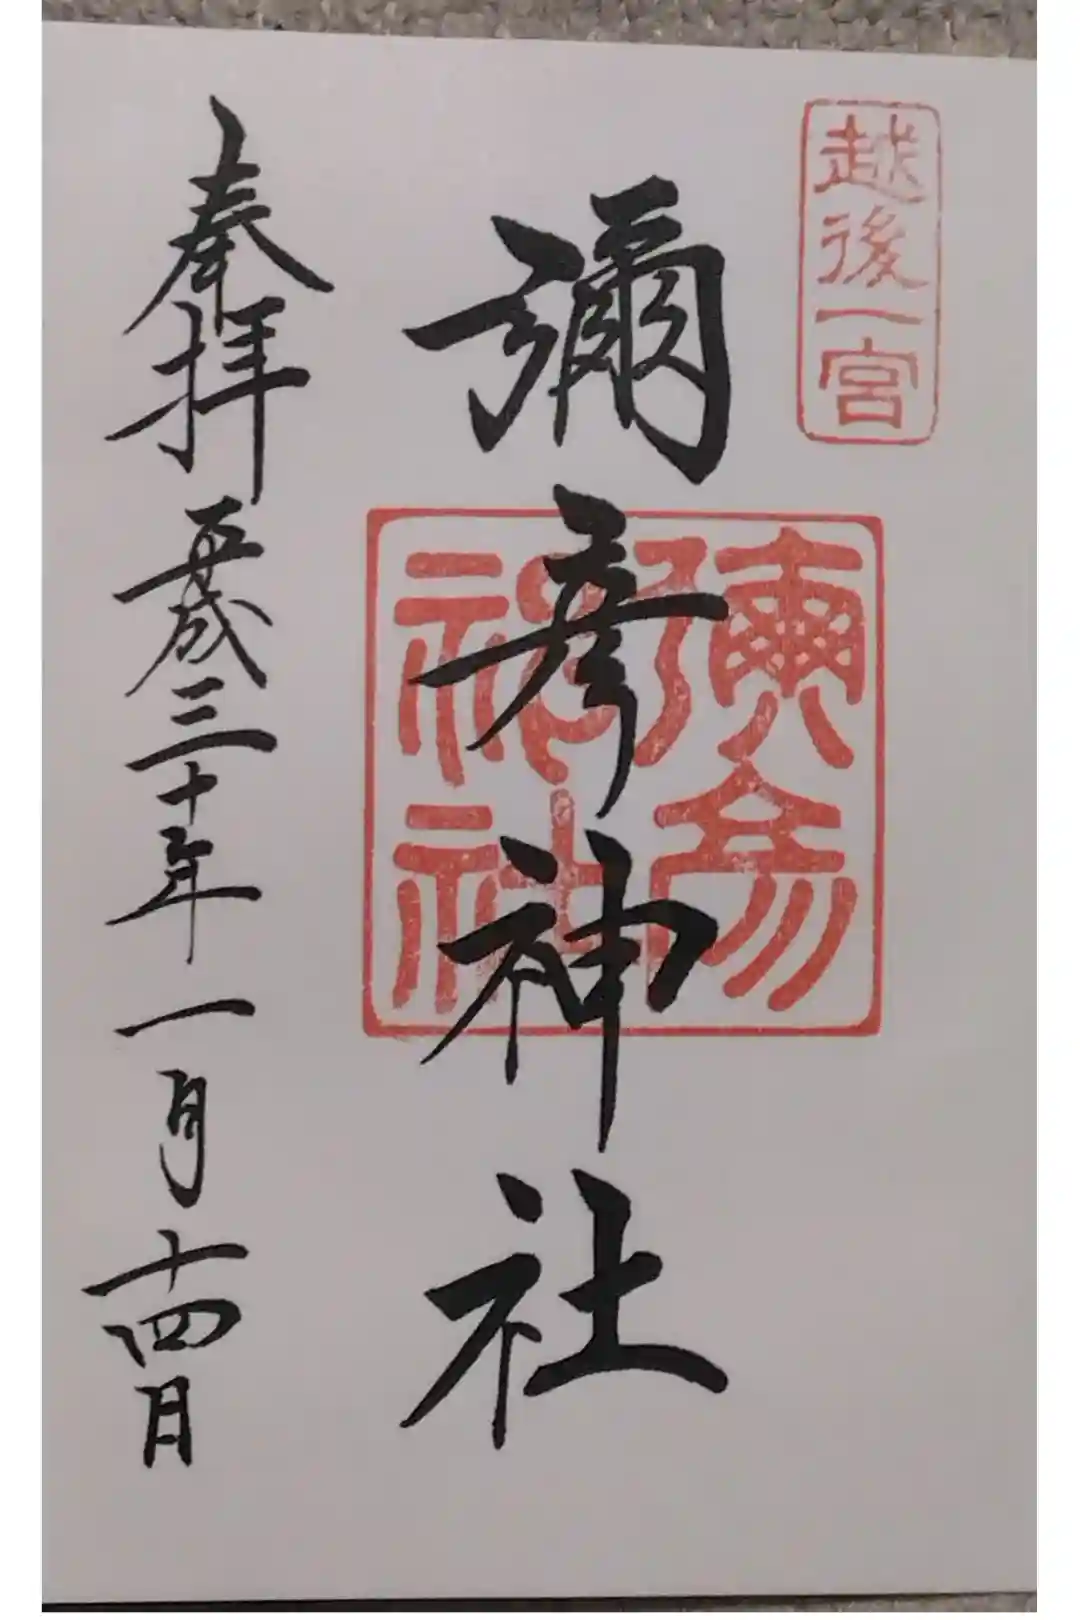 越後一宮
彌彦神社
彌彦神社
奉拝 平成三十年一月十四日